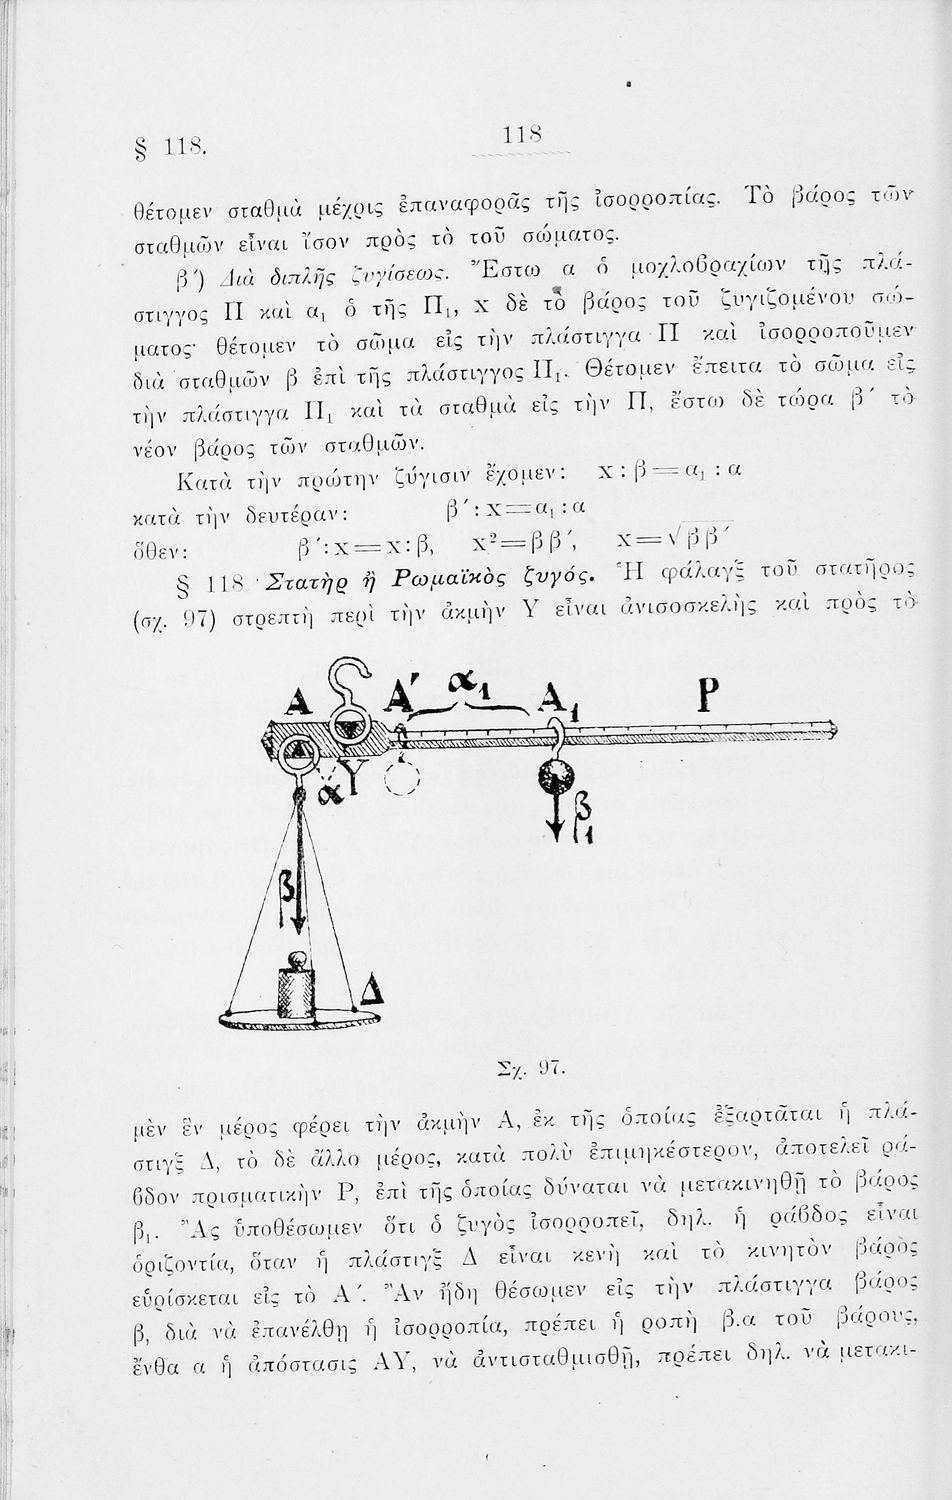 § 118.
118
θέτομεν σταθμὰ μέχρις ἐπαναφορᾶς τῆς ἰσορροπίας. Τὸ βάρος τῶν
σταθμῶν εἶναι ἴσον πρὸς τὸ τοῦ σώματος.
β΄) Διὰ διπλῆς ζυγίσεως. Ἔστω α ὁ μοχλοβραχίων τῆς πλά-
στιγγος Π καὶ α₁ ὁ τῆς Π₁, x δὲ τὸ βάρος τοῦ ζυγιζομένου σώ-
ματος· θέτομεν τὸ σῶμα εἰς τὴν πλάστιγγα Π καὶ ἰσορροποῦμεν
διὰ σταθμῶν β ἐπὶ τῆς πλάστιγγος Π₁. Θέτομεν ἔπειτα τὸ σῶμα εἰς
τὴν πλάστιγγα Π₁ καὶ τὰ σταθμὰ εἰς τὴν Π, ἔστω δὲ τώρα β΄ τὸ
νέον βάρος τῶν σταθμῶν.
Κατὰ τὴν πρώτην ζύγισιν ἔχομεν: x : β = α₁ : α
κατὰ τὴν δευτέραν: β΄ : x = α₁ : α
ὅθεν: β΄: x = x: β, x² = β β΄, x = √β β΄
§ 118 · Στατὴρ ἢ Ρωμαϊκὸς ζυγός. Ἡ φάλαγξ τοῦ στατῆρος
(σχ. 97) στρεπτὴ περὶ τὴν ἀκμὴν Υ εἶναι ἀνισοσκελὴς καὶ πρὸς τὸ
Α Α΄ α₁ Α₁ Ρ
α Υ
β₁
β
Δ
Σχ. 97.
μὲν ἓν μέρος φέρει τὴν ἀκμὴν Α, ἐκ τῆς ὁποίας ἐξαρτᾶται ἡ πλά-
στιγξ Δ, τὸ δὲ ἄλλο μέρος, κατὰ πολὺ ἐπιμηκέστερον, ἀποτελεῖ ρά-
βδον πρισματικὴν Ρ, ἐπὶ τῆς ὁποίας δύναται νὰ μετακινηθῇ τὸ βάρος
β₁. Ἂς ὑποθέσωμεν ὅτι ὁ ζυγὸς ἰσορροπεῖ, δηλ. ἡ ράβδος εἶναι
ὁριζοντία, ὅταν ἡ πλάστιγξ Δ εἶναι κενὴ καὶ τὸ κινητὸν βάρος
εὑρίσκεται εἰς τὸ Α΄. Ἂν ἤδη θέσωμεν εἰς τὴν πλάστιγγα βάρος
β, διὰ νὰ ἐπανέλθῃ ἡ ἰσορροπία, πρέπει ἡ ροπὴ β.α τοῦ βάρους,
ἔνθα α ἡ ἀπόστασις ΑΥ, νὰ ἀντισταθμισθῇ, πρέπει δηλ. νὰ μετακι-